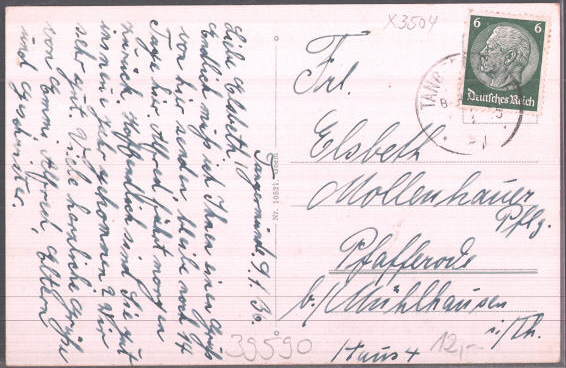 Tangermünde, 9.1.36.
Liebe Elsbeth!
Endlich muß ich Ihnen einen Gruß
von hier senden, bleibe noch 14
Tage hier. Alfred fährt morgen
zurück. Hoffentlich sind Sie gut
ins neue Jahr gekommen? Wir
sehr gut. Viele herzliche Grüße
von Emmi, Alfred, Eltern
und Geschwister.
Nr. 10521
X3504
6 6
Deutsches Reich
TANG
Frl.
Elsbeth
Mollenhauer
Pflg.
Pfafferode
b/Mühlhausen
i/Th.
Haus 4
39590
12,-